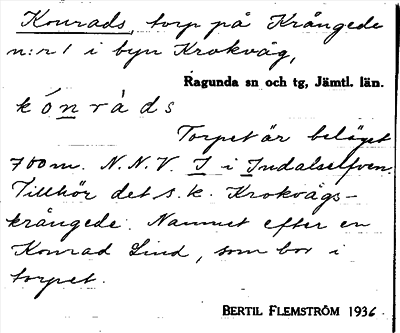 Konrads, torp på Krångede
n:r 1 i byn Krokvåg,
Ragunda sn och tg, Jämtl. län.
kónràds
Torpet är beläget
700 m. N.N.V. I i Indalselfven.
Tillhör det s.k. Krokvågs-
krångede. Namnet efter en
Konrad Lind, som bor i
torpet.
BERTIL FLEMSTRÖM 1936